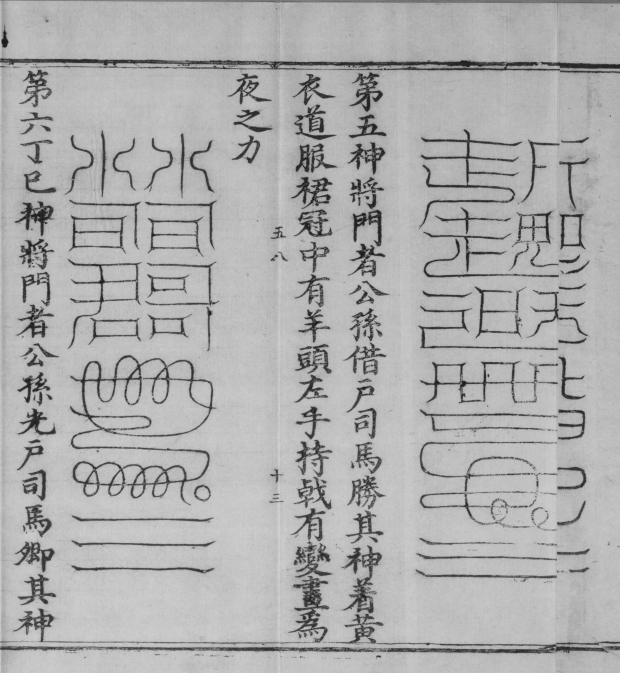 第五神將門者公孫借戶司馬勝其神着黃
衣道服裙冠中有羊頭左手持戟有變晝為
夜之力
五八
十三
第六丁巳神將門者公孫光戶司馬卿其神